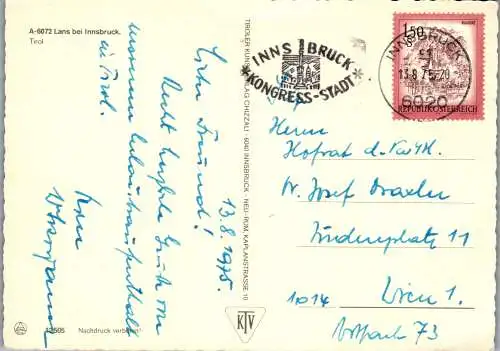 A-6072 Lans bei Innsbruck.
Tirol
13.8.1975.
Lieber Freund!
Recht herzliche Grüße von
unserem Urlaubsaufenthalt
in Tirol.
TIROLER KUNSTVERLAG CHIZZALI · 6040 INNSBRUCK · NEU-RUM, KAPLANSTRASSE 10
KTV
12505 Nachdruck verboten!
INNSBRUCK
KONGRESS-STADT
INNSBRUCK
13.8.75-20
6020
1.50
S
REPUBLIK ÖSTERREICH
Herrn
Hofrat d.
Dr. Josef Draxler
Lindenplatz 11
1014 Wien 1.
Postfach 73